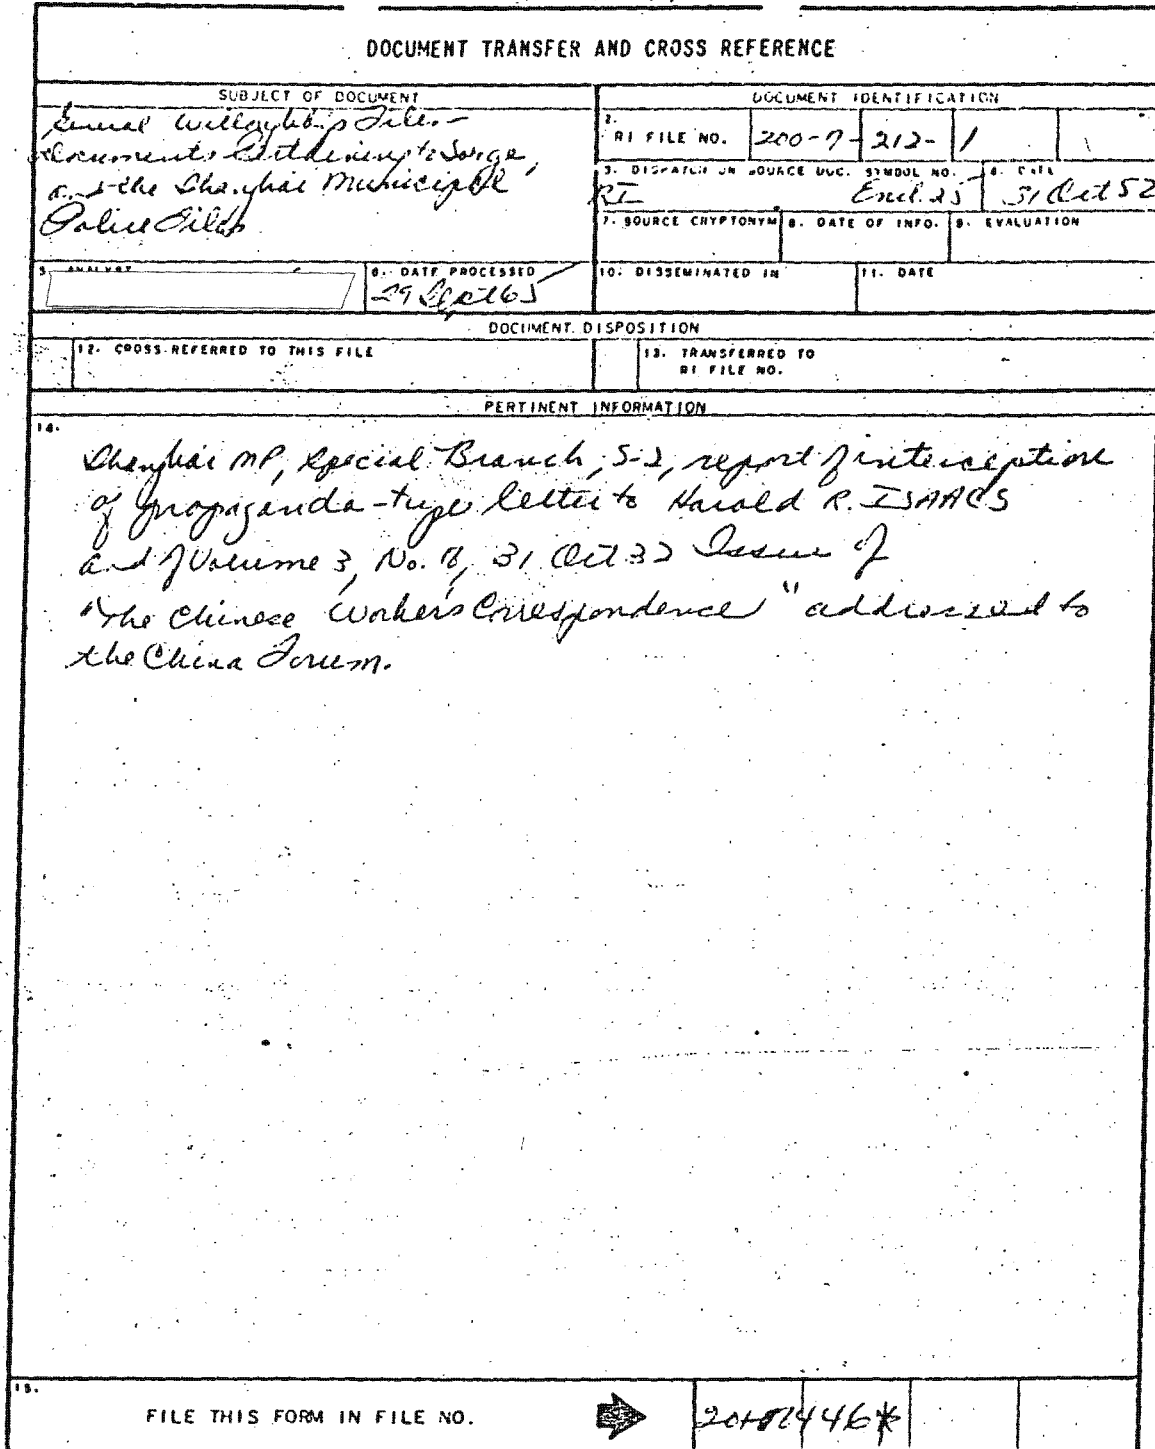 DOCUMENT TRANSFER AND CROSS REFERENCE
SUBJECT OF DOCUMENT
General Willoughby's Files -
Documents Pertaining to Sorge,
and the Shanghai Municipal
Police Files
DOCUMENT IDENTIFICATION
2.
RI FILE NO. 200-7-212-1
3. DISPATCH OR SOURCE DOC. SYMBOL NO.
RI Encl. 25
4. DATE
31 Oct 52
7. SOURCE CRYPTONYM
8. DATE OF INFO.
9. EVALUATION
5. ANALYST
6. DATE PROCESSED
29 Sept 65
10. DISSEMINATED IN
11. DATE
DOCUMENT DISPOSITION
12. CROSS REFERRED TO THIS FILE
13. TRANSFERRED TO
RI FILE NO.
PERTINENT INFORMATION
14.
Shanghai MP, Special Branch, S-2, report of interception
of propaganda-type letter to Harold R. ISAACS
and of Volume 3, No. 31 Oct 32 Issue of
"The Chinese Workers Correspondence" addressed to
the China Forum.
15.
FILE THIS FORM IN FILE NO.